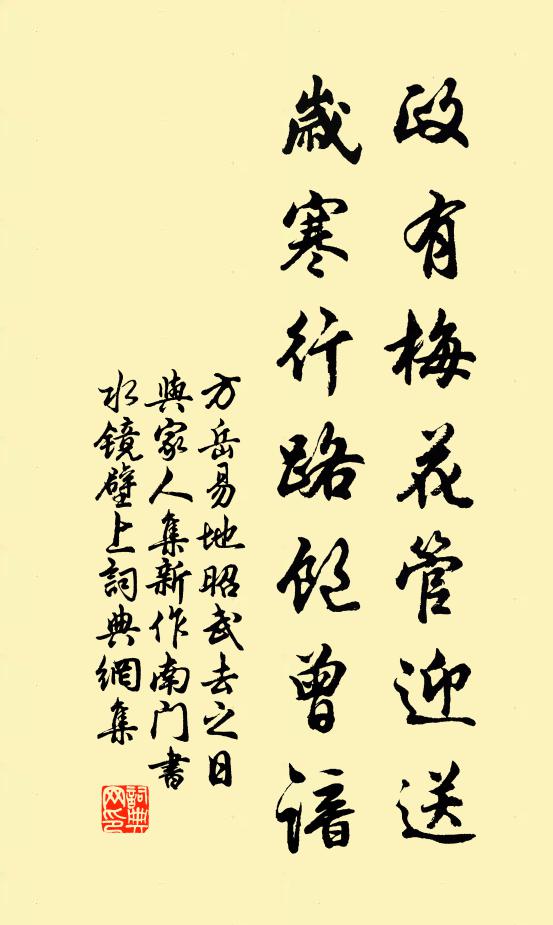 政有梅花管迎送
歲寒行路飽曾諳
方岳易地昭武去之日
與家人集新作南门書
水鏡壁上詞典網集
詞典網印